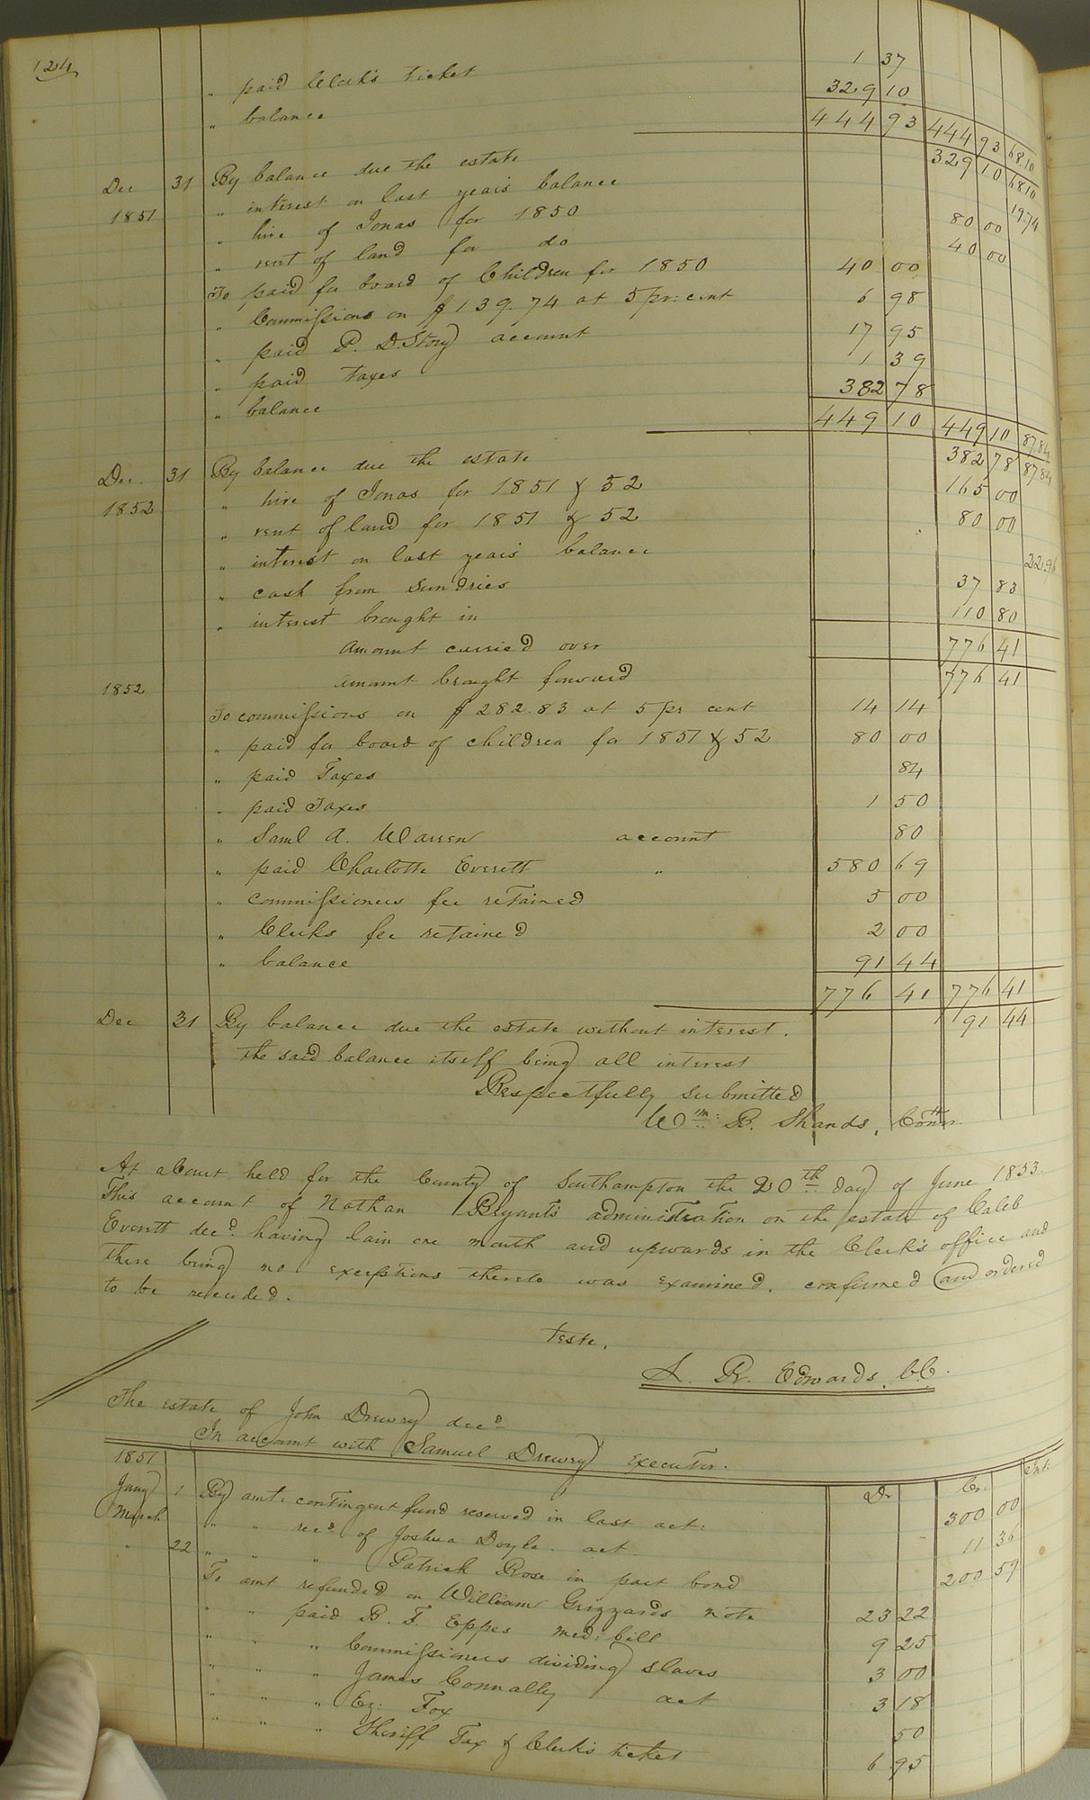 124
" paid Clerk's ticket 1 37
" balance 329 10
444 93 444 93 68.10
Dec 31 By balance due the estate 329 10 68 10
1851 " interest on last year's balance 19.74
" hire of Jonas for 1850 80 00
" rent of land for do 40 00
To paid for board of Children for 1850 40 00
" Commissions on $139.74 at 5 pr: cent 6 98
" paid P. D. Story account 17 95
" paid taxes 1 39
" balance 382 78
449 10 449 10 87.84
Dec. 31 By balance due the estate 382 78 87.84
1852 " hire of Jonas for 1851 & 52 165 00
" rent of land for 1851 & 52 80 00
" interest on last year's balance 22.96
" cash from Sundries 37 83
" interest brought in 110 80
Amount carried over 776 41
1852 Amount brought forward 776 41
To commissions on $282.83 at 5 pr cent 14 14
" paid for board of children for 1851 & 52 80 00
" paid Taxes 84
" paid Taxes 1 50
" Saml A. Warren account 80
" paid Charlotte Everett " 580 69
" commissioners fee retained 5 00
" Clerks fee retained 2 00
" balance 91 44
776 41 776 41
Dec 31 By balance due the estate without interest. 91 44
the said balance itself being all interest
Respectfully submitted
Wm: B. Shands, Comr.
At a Court held for the County of Southampton the 20th day of June 1853.
This account of Nathan Bryant's administration on the estate of Caleb
Everett decd. having lain one month and upwards in the Clerk's office and
there being no exceptions thereto was examined, confirmed and ordered
to be recorded.
Teste,
L. R. Edwards, C.C.
The estate of John Drewry decd
In account with Samuel Drewry executor.
1851 Dr Cr. Int:
Jany 1 By amt: contingent fund reserved in last act: 300 00
March " " recd of Joshua Doyle act 11 36
" 22 " " " Patrick Rose in part bond 200 59
To amt refunded on William Grizzards note 23 22
" " paid B. F. Eppes med: bill 9 25
" " " Commissioners dividing slaves 3 00
" " " James Connally act 3 18
" " " Ez: Fox 50
" " " Sheriff Tax & Clerk's ticket 6 95